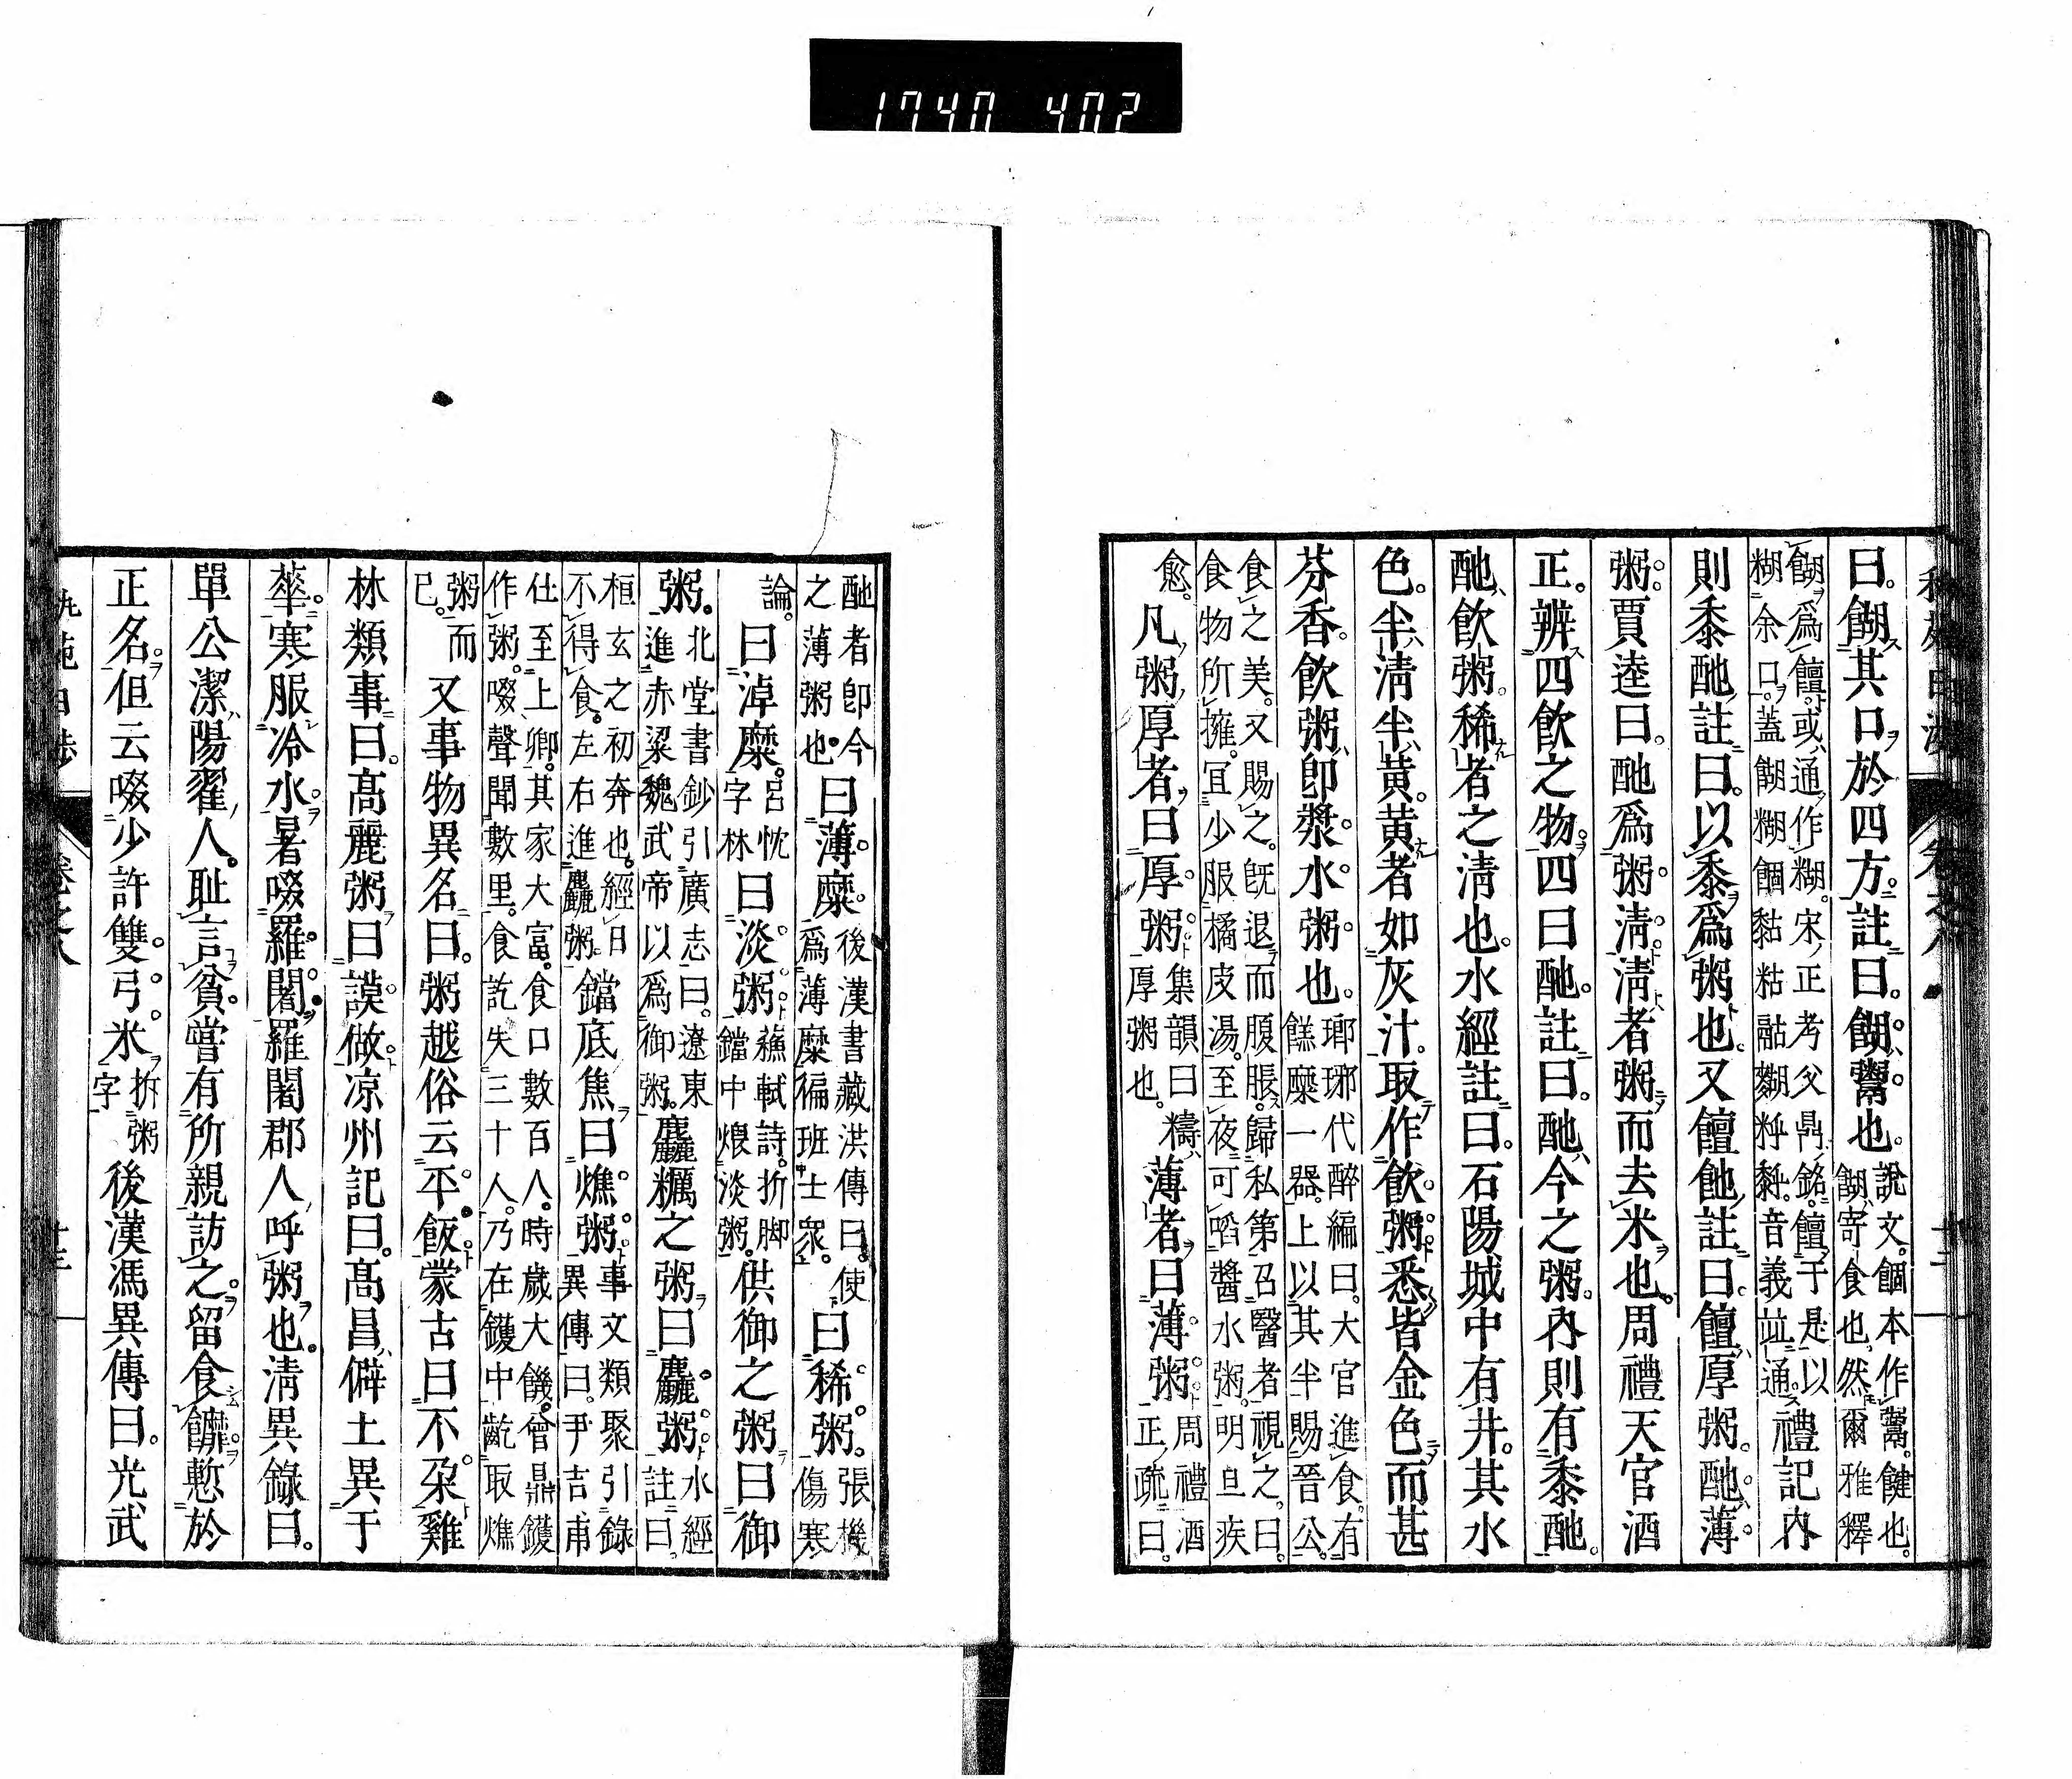 1740 402
曰。餬其口於四方。註曰。餬鬻也。說文。䭅本作鬻。饘也。餬寄食也。然爾雅釋
餬爲饘。或通作糊。宋正考父鼎銘。饘于是以糊余口。蓋餬糊䭅黏粘䴴麴䊀䵒。音義竝通。禮記內
則黍酏註曰。以黍爲粥也。又饘酏註曰。饘厚粥。酏薄
粥。賈逵曰。酏爲粥淸。淸者粥而去米也。周禮天官酒
正。辨四飮之物。四曰酏。註曰。酏今之粥。內則有黍酏。
酏飮粥稀者之淸也。水經註曰。石陽城中有井。其水
色。半淸半黃。黃者如灰汁。取作飮粥。悉皆金色而甚
芬香。飮粥卽漿水粥也。瑯琊代醉編曰。大官進食。有餻糜一器。上以其半賜晉公。
食之美。又賜之。旣退而腹脹。歸私第召醫者視之。曰。食物所擁。宜少服橘皮湯。至夜可啗醬水粥。明旦疾
愈。凡粥厚者曰厚粥集韻曰䊭厚粥也。薄者曰薄粥。周禮酒正疏曰。
酏者卽今之薄粥也。曰薄糜。後漢書臧洪傳曰。使爲薄糜徧班士衆。曰稀粥。張機傷寒
論。曰淖糜。呂忱字林曰淡粥。蘇軾詩。折脚鐺中煨淡粥。供御之粥曰御
粥。北堂書鈔引廣志曰。遼東進赤粱魏武帝以爲御粥。麤糲之粥曰麤粥。水經註曰。
桓玄之初奔也。經日不得食。左右進麤粥。鐺底焦曰燋粥。事文類聚引錄異傳曰。尹吉甫
仕至上卿。其家大富。食口數百人。時歲大饑。會鼎鑊作粥。啜聲聞數里。食訖失三十人。乃在鑊中齕取燋
粥而已。又事物異名曰。粥越俗云平飯。蒙古曰不朶。雞
林類事曰。高麗粥曰謨做。凉州記曰。高昌僻土異于
華。寒服冷水。暑啜羅闍。羅闍郡人呼粥也。淸異錄曰。
單公潔。陽翟人。耻言貧。嘗有所親訪之。留食䭧慙於
正名。但云啜少許雙弓米。拆粥字後漢馮異傳曰。光武